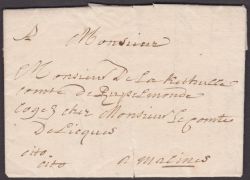 A Monsieur
Monsieur De La Kethulle
comte de Rupelmonde
Logez chez Monsieur Le Comte
De Licques
cito
cito a Malines